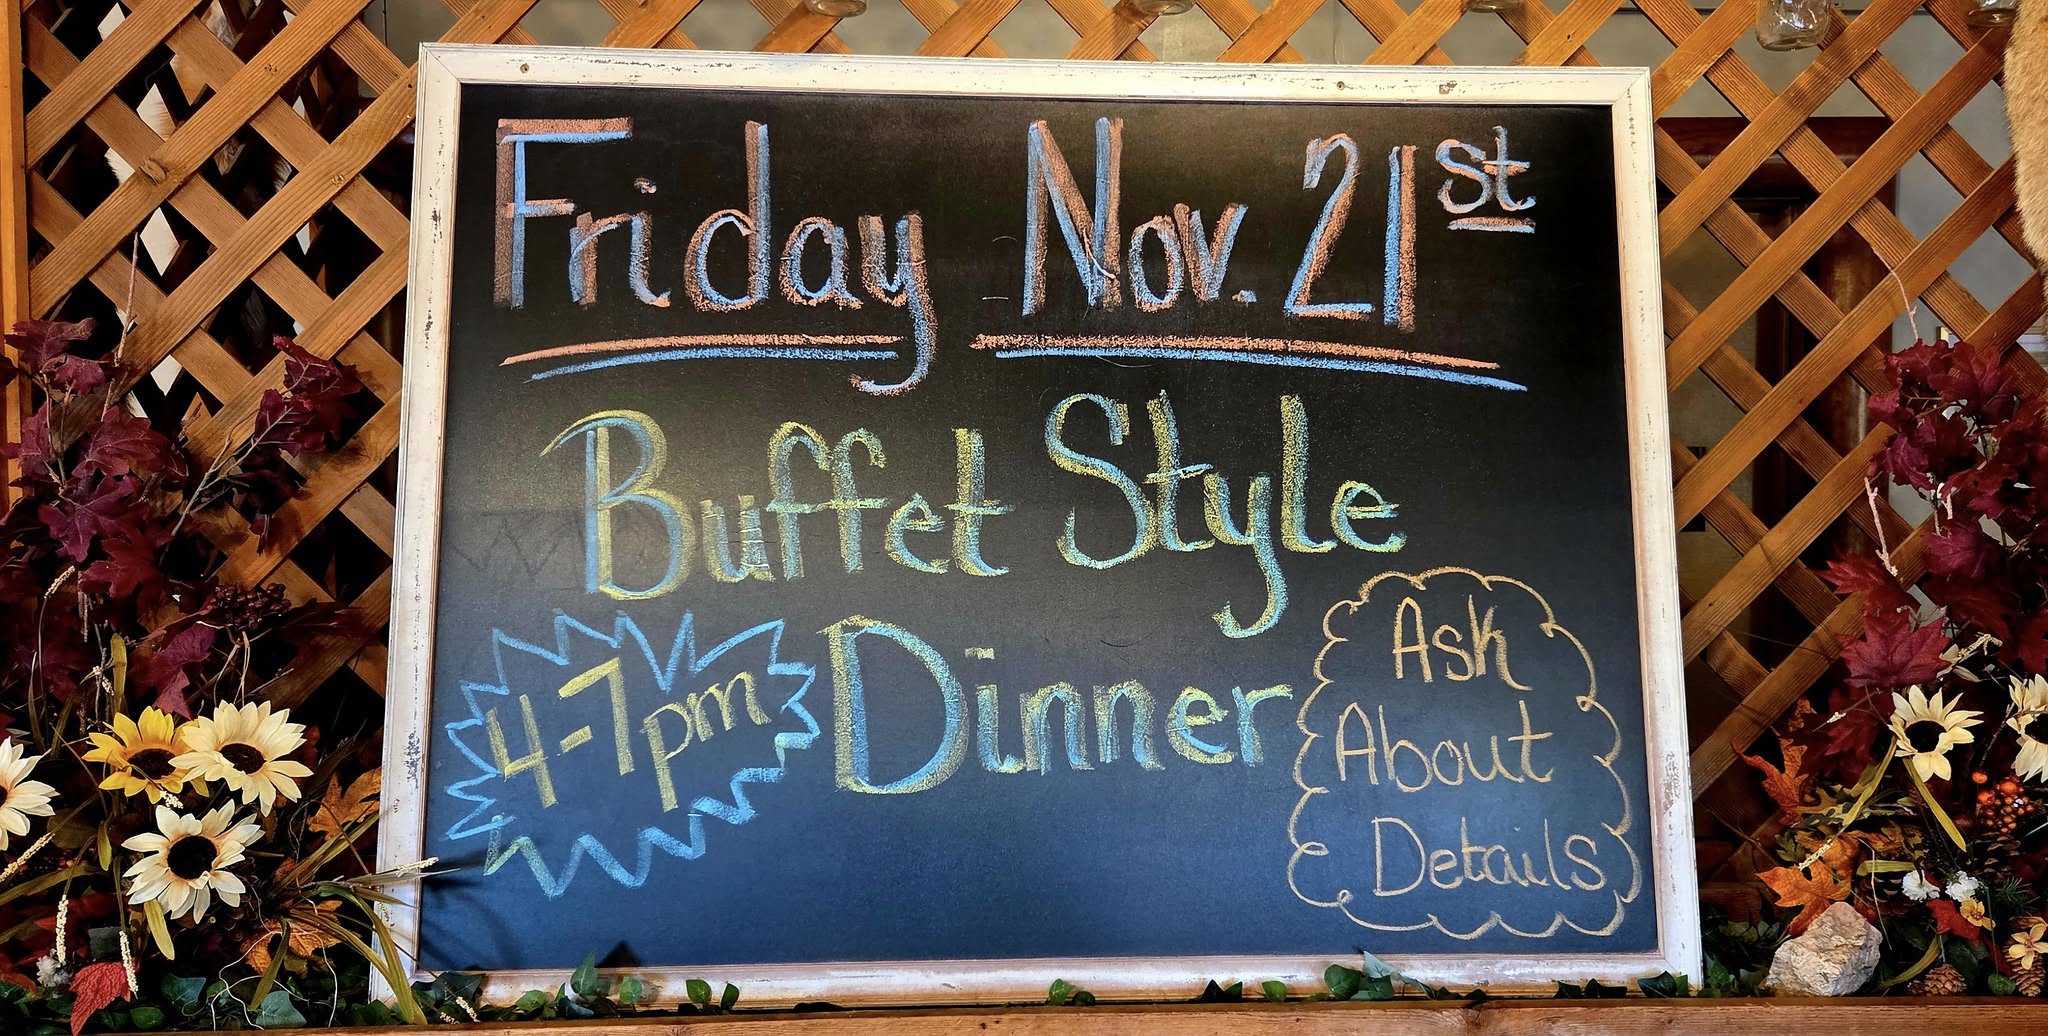 Friday Nov. 21st
Buffet Style
Dinner
4-7pm
Ask
About
Details